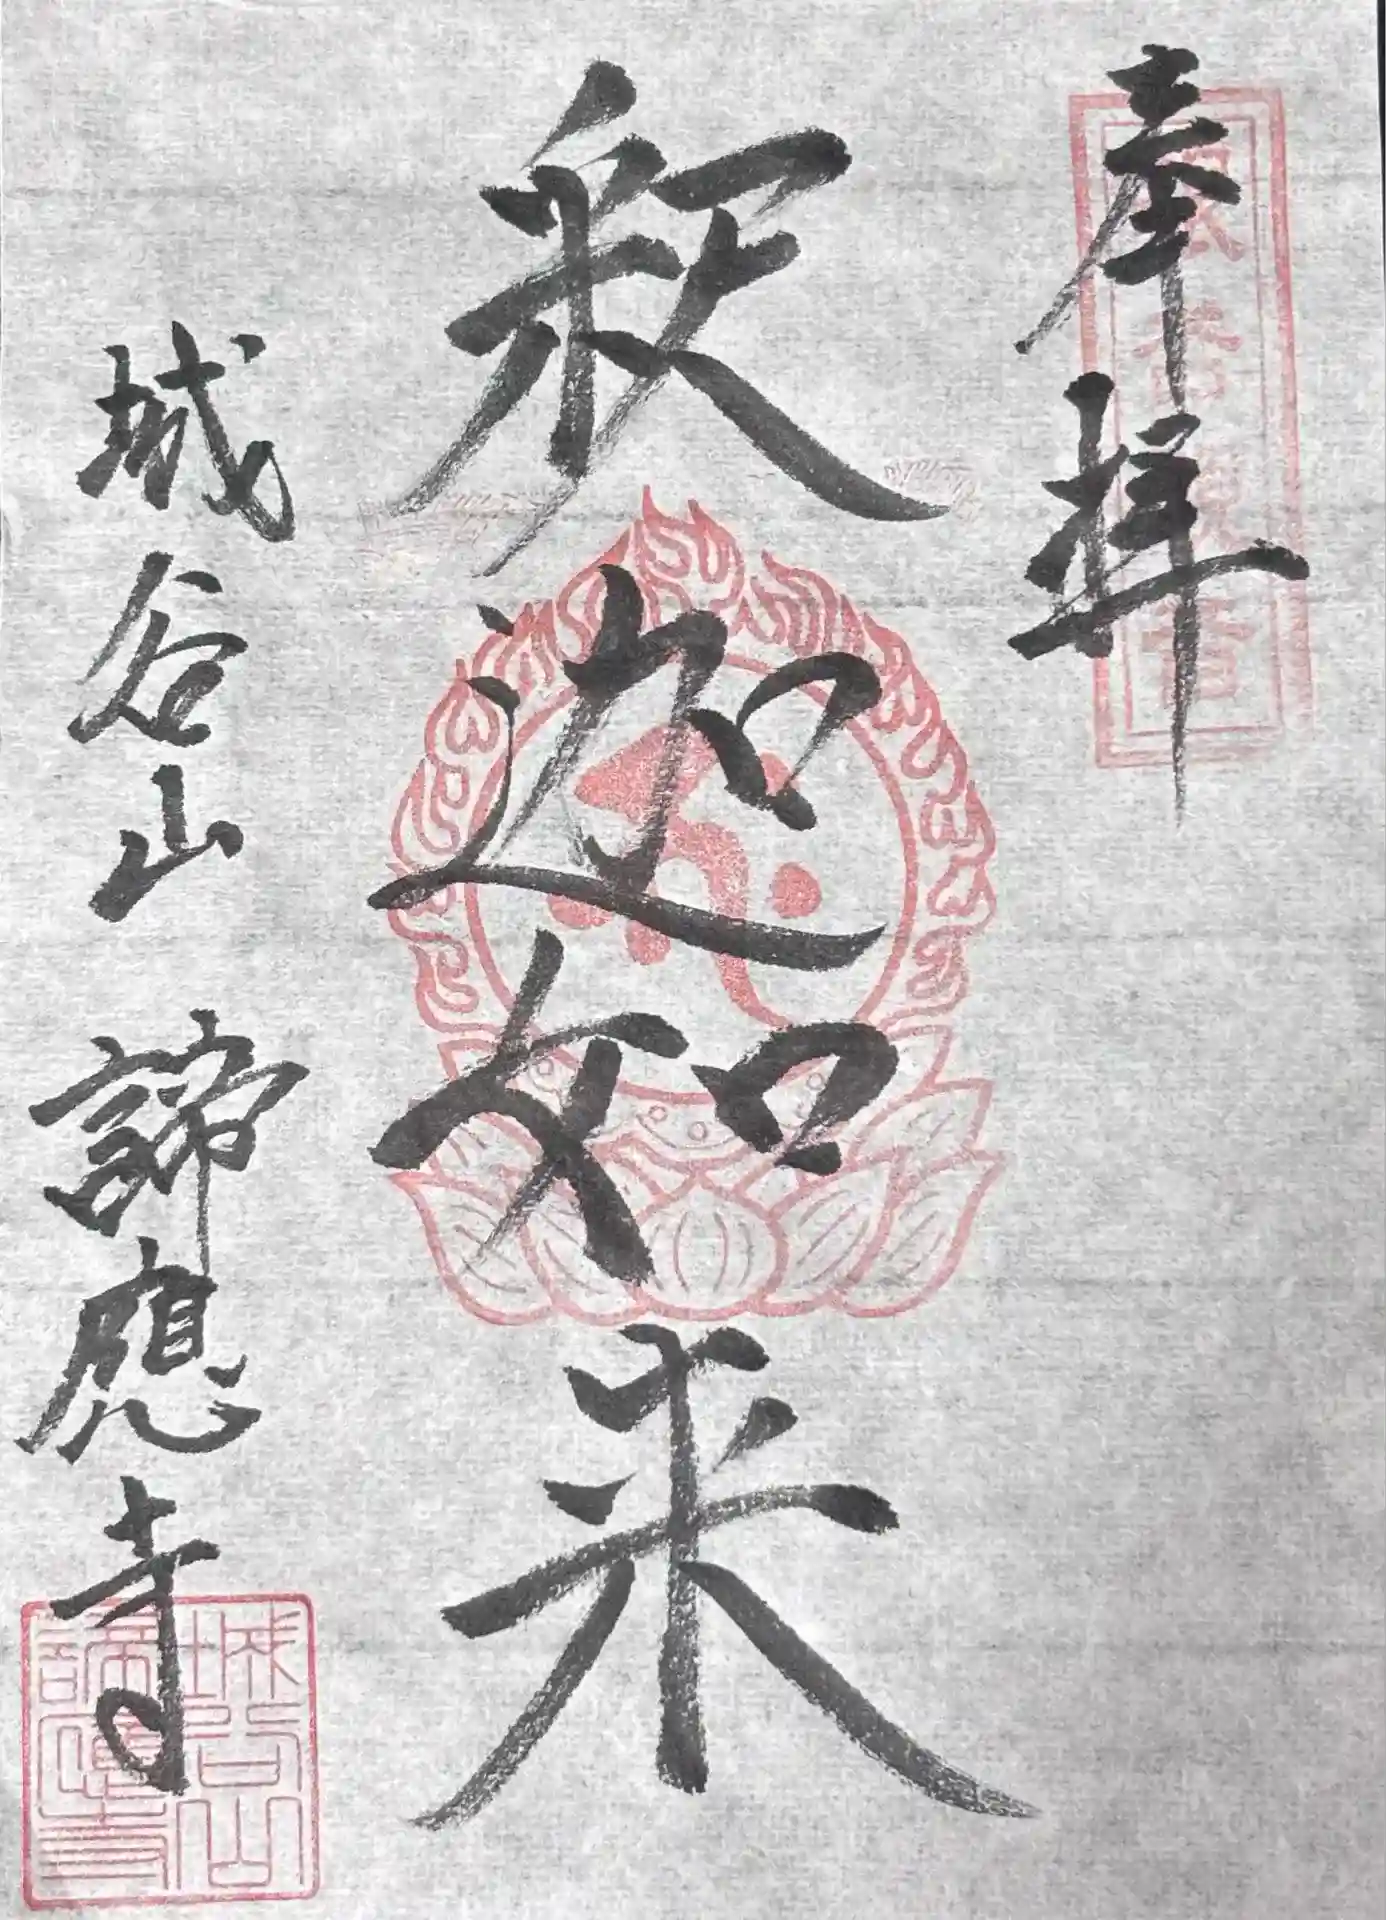 奉拝
釈迦如来
城谷山 諦應寺
城谷山
諦應寺